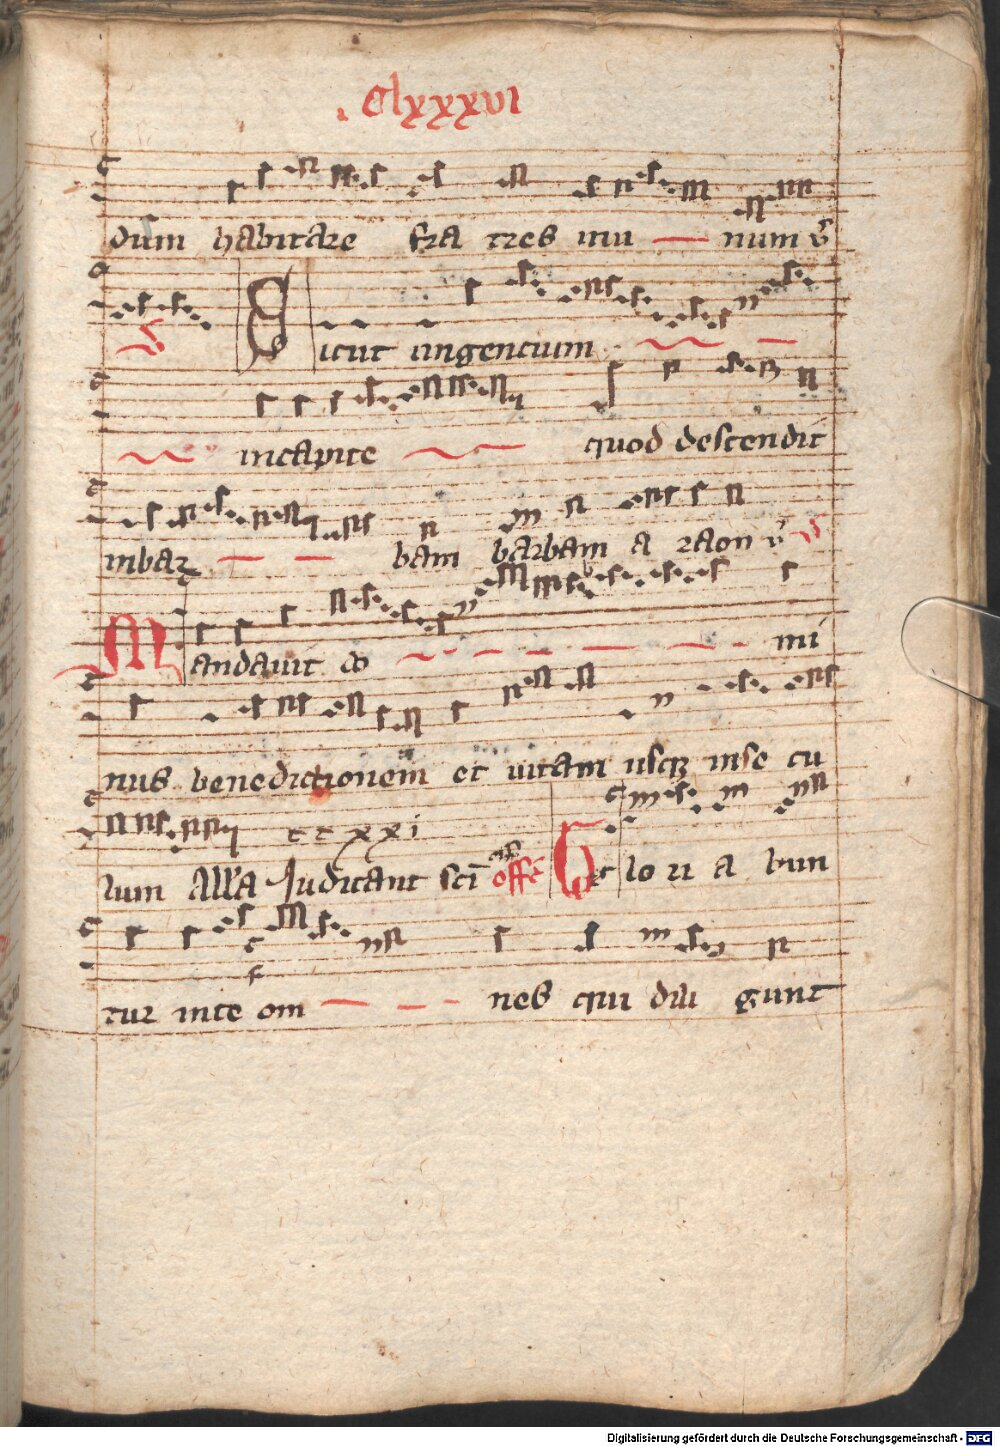 Clxxxvi
dum habitare fra tres inu num v̄
Sicut ungencium
incapite quod descendit
inbar bam barbam a raon v̄
Mandauit do mi
nus benedictionem et uitam usq inse cu
ccxxi
lum All'a Judicant sc̄i offē Et glo ri a bun
tur inte om nes qui dili gunt
Digitalisierung gefördert durch die Deutsche Forschungsgemeinschaft - DFG